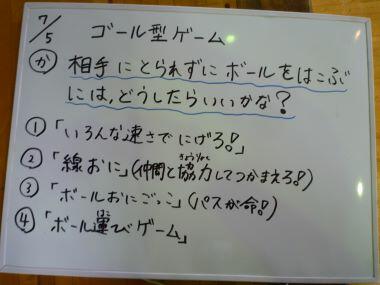 7/5 ゴール型ゲーム
か 相手にとられずにボールをはこぶ
には、どうしたらいいかな？
① 「いろんな速さでにげろ！」
② 「線おに」(仲間と協力してつかまえろ！)
きょうりょく
③ 「ボールおにごっこ」(パスが命！)
④ 「ボール運びゲーム」
はこ